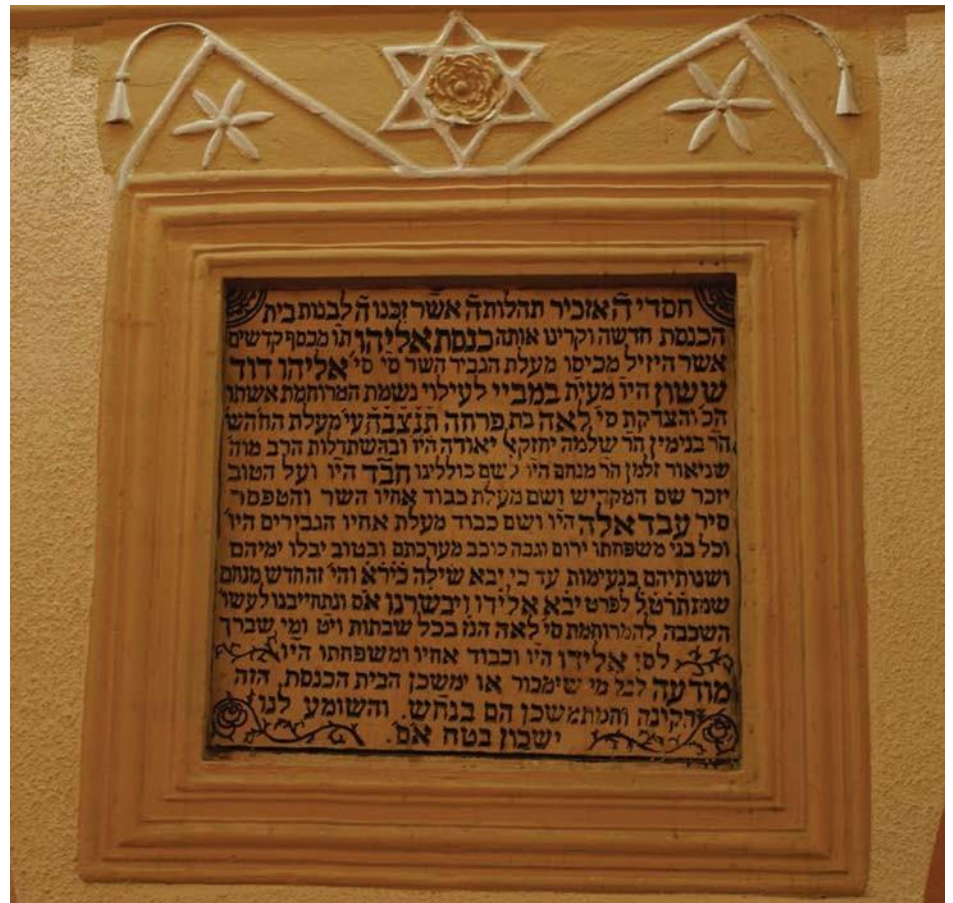 חסדי ה' אזכיר תהלות ה' אשר זכנו ה' לבנות בית
הכנסת חדשה וקרינו אותה כנסת אליהו ת"ו מכסף קדשים
אשר היזיל מכיסו מעלת הגביר השר סי' סי' אליהו דוד
ששון הי"ו מעי"ת במביי לעילוי נשמת המרוחמת אשתו
הכ' והצדקת סי' לאה בת פרחה תנצב"ה ע"י מעלת החהש'
הר' בנימין הר' שלמה יחזקאל יאודה הי"ו ובהשתדלות הרב מוה'
שניאור זלמן הר' מנחם הי"ו לשם כוללינו חב"ד הי"ו ועל הטוב
יזכר שם המקדיש ושם מעלת כבוד אחיו השר והטפסר
סיר עבד אלה הי"ו ושם כבוד מעלת אחיו הגבירים הי"ו
וכל בני משפחתו ירום וגבה כוכב מערכתם ובטוב יבלו ימיהם
ושנותיהם בנעימות עד כי יבא שילה כי"רא והי' זה החדש מנחם
שנת לפרט יבא אלידו ויבשרנו אס ונתחייבנו לעשו'
השכבה להמרוחמת סי' לאה הנז' בכל שבתות וי"ט ומי שברך
לסי' אלידו הי"ו וכבוד אחיו ומשפחתו הי"ו
מודעה לכל מי שימכור או ימשכן הבית הכנסת, הזה
הקינה והמתמשכן הם בנחש. והשומע לנו
ישכון בטח אס.